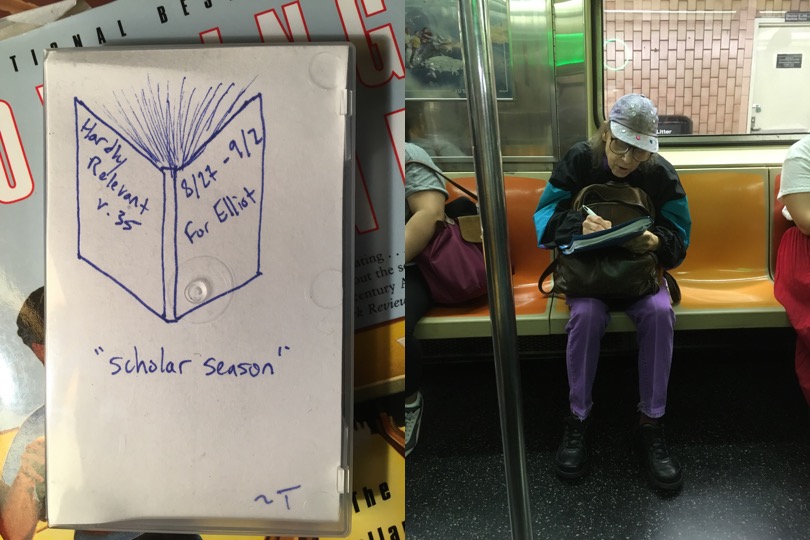 TIONAL BES
ING
Hardly
Relevant
v. 35
8/27 - 9/2
For Elliot
"scholar season"
~T
ating . .
out the s
century
k Review
The
llar
Litter